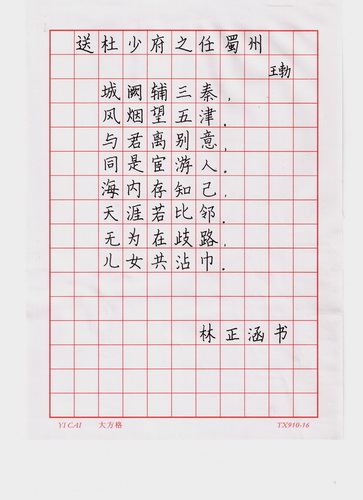 送杜少府之任蜀州
王勃
城阙辅三秦，
风烟望五津。
与君离别意，
同是宦游人。
海内存知己，
天涯若比邻。
无为在歧路，
儿女共沾巾。
林正涵书
YI CAI 大方格 TX910-16